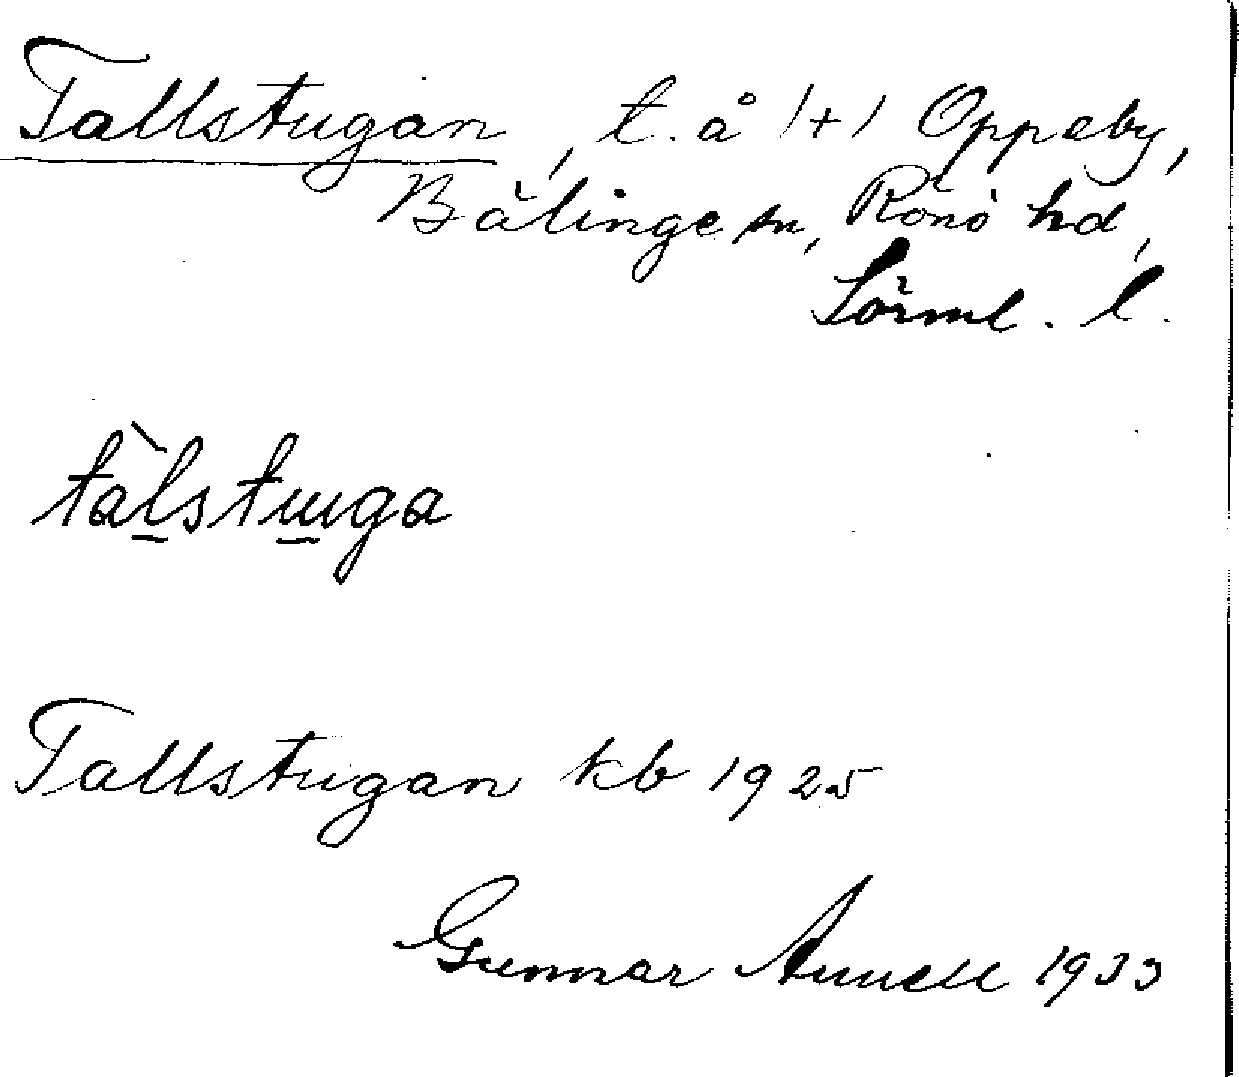 Tallstugan, t. å /+/ Oppeby,
Bälinge sn, Rönö hd,
Sörml. l.
tàlstɯga
Tallstugan kb 1925
Gunnar Annell 1933